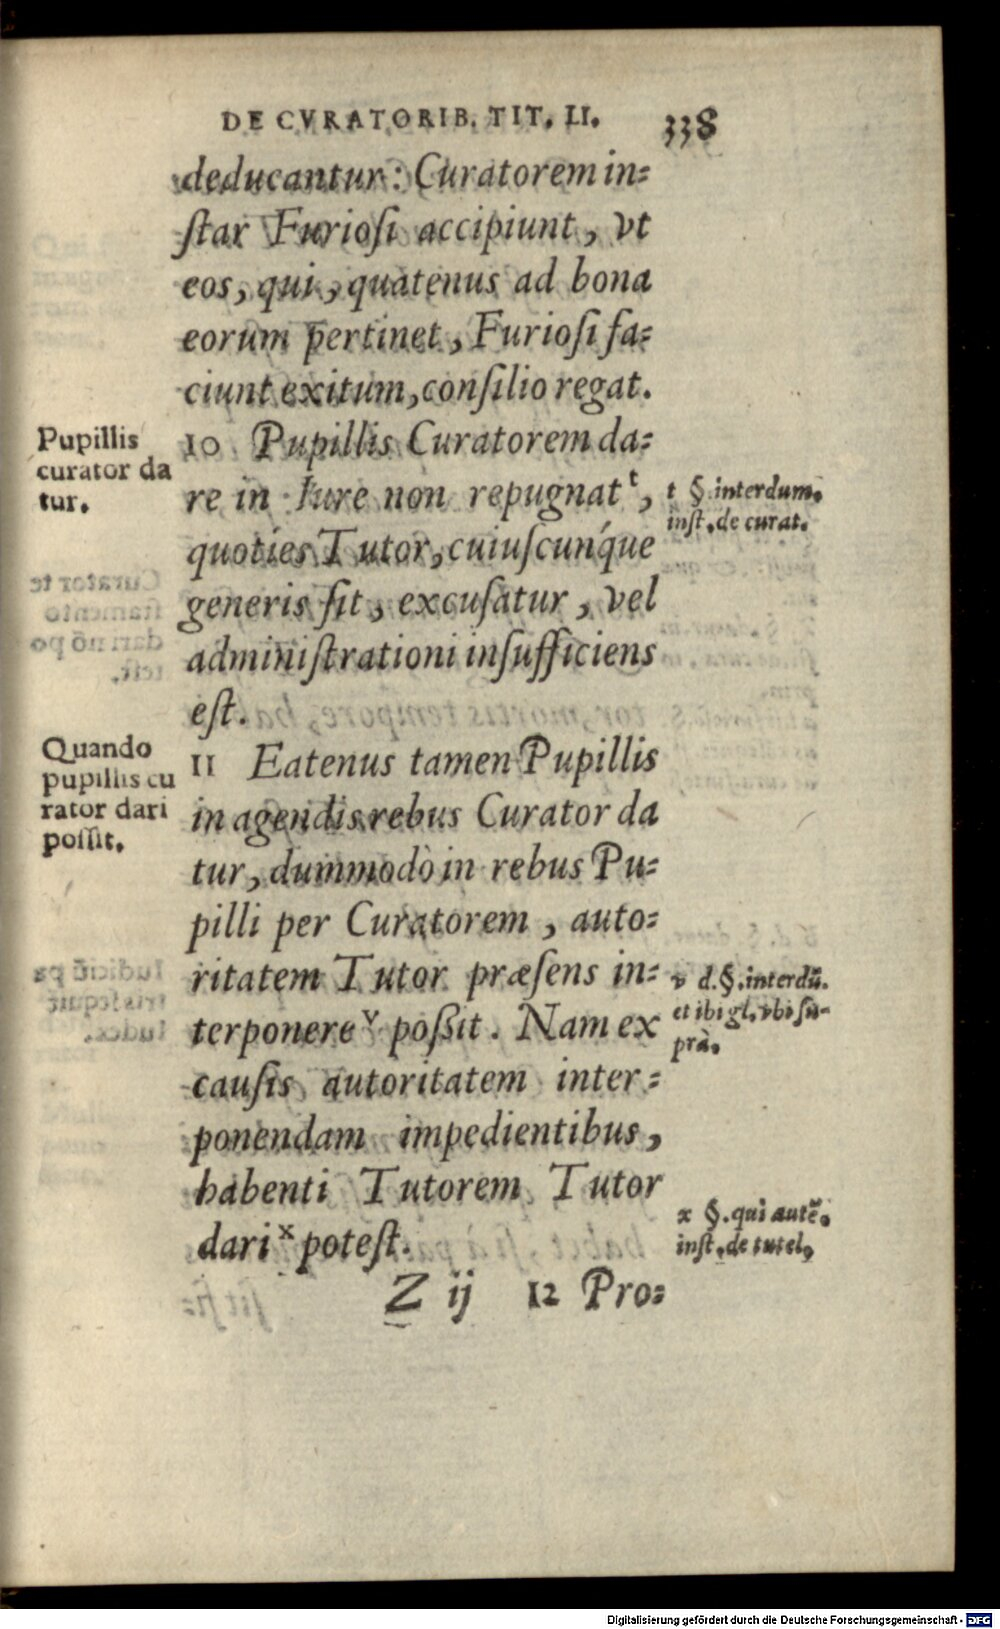 DE CVRATORIB. TIT. LI. 338
deducantur: Curatorem in=
ſtar Furioſi accipiunt, vt
eos, qui, quatenus ad bona
eorum pertinet, Furioſi fa=
ciunt exitum, conſilio regat.
Pupillis
curator da
tur.
10 Pupillis Curatorem da=
re in Iure non repugnat ᵗ,
quoties Tutor, cuiuſcunq́ue
generis ſit, excuſatur, vel
adminiſtrationi inſufficiens
eſt.
t §. interdum.
inſt. de curat.
Quando
pupillis cu
rator dari
poſſit.
11 Eatenus tamen Pupillis
in agendis rebus Curator da
tur, dummodò in rebus Pu=
pilli per Curatorem, auto=
ritatem Tutor præſens in=
terponere ᵛ poßit. Nam ex
cauſis autoritatem inter=
ponendam impedientibus,
habenti Tutorem Tutor
dari ˣ poteſt.
v d. §. interdũ.
et ibi gl. vbi ſu-
prà.
x §. qui autẽ.
inſt. de tutel,
Z ij 12 Pro=
Digitalisierung gefördert durch die Deutsche Forschungsgemeinschaft - DFG